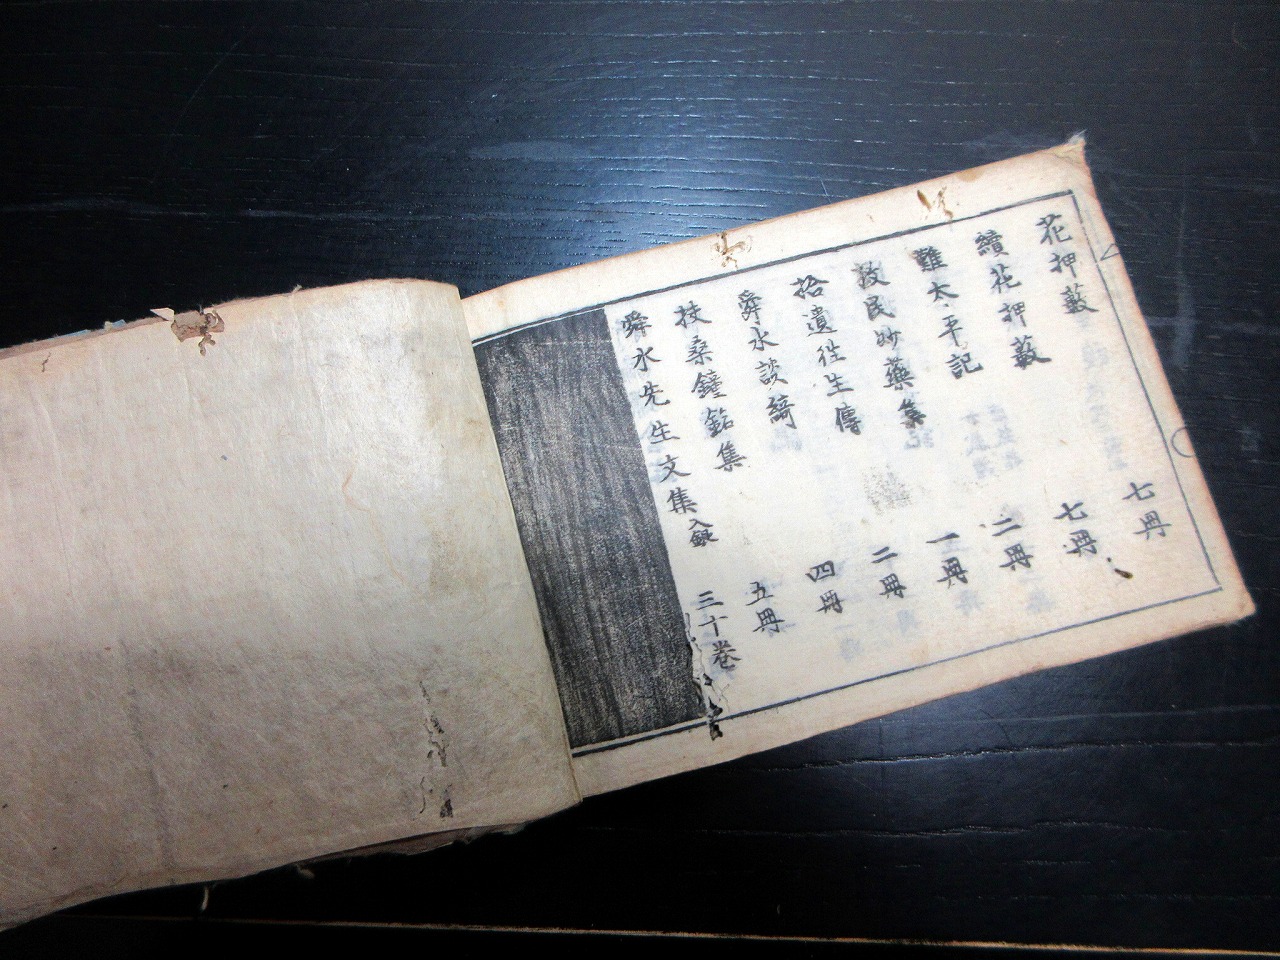 花押藪 七冊
續花押藪 七冊
難太平記 二冊
救民妙藥集 一冊
拾遺往生傳 二冊
舜水談綺 四冊
扶桑鐘銘集 五冊
舜水先生文集入銀 三十卷